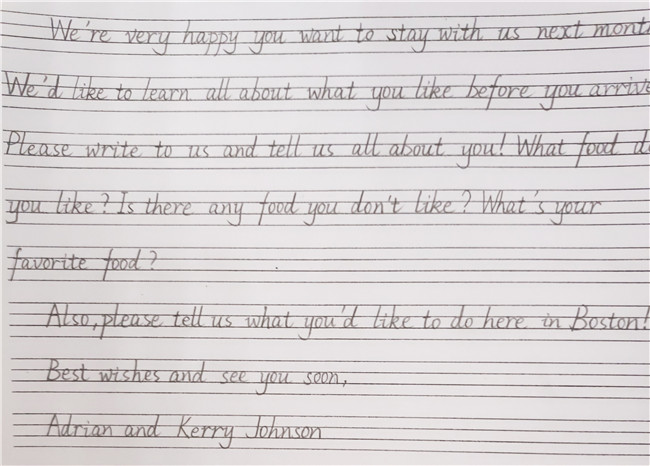 We're very happy you want to stay with us next mont
We'd like to learn all about what you like before you arrive
Please write to us and tell us all about you! What food d
you like? Is there any food you don't like? What's your
favorite food?
Also, please tell us what you'd like to do here in Boston!
Best wishes and see you soon,
Adrian and Kerry Johnson